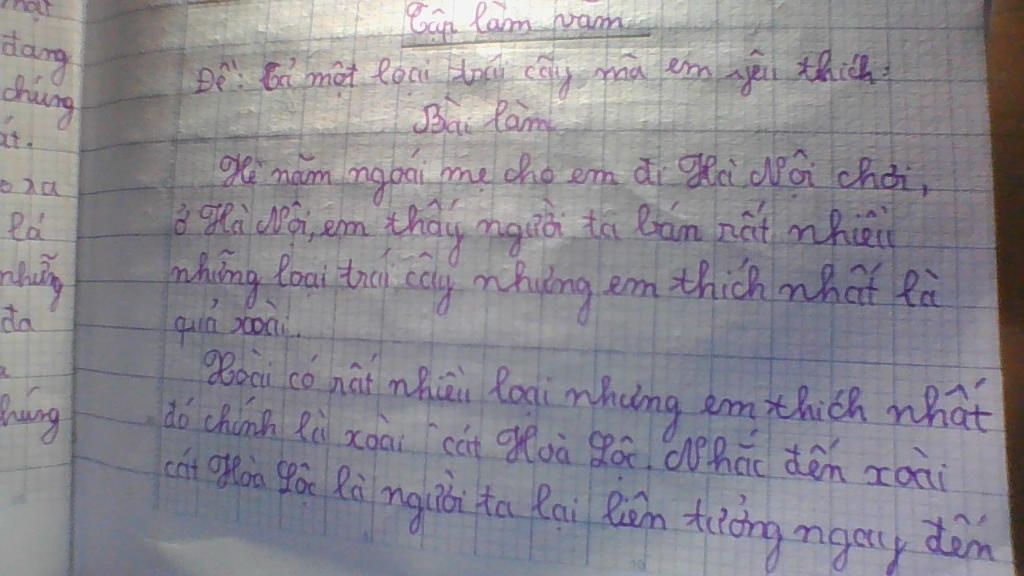 Tập làm văn
đang
Đề: Tả một loại trái cây mà em yêu thích:
chúng
Bài làm
ất.
Hè năm ngoái mẹ cho em đi Hà Nội chơi,
o xa
ở Hà Nội, em thấy người ta bán rất nhiều
lá
những loại trái cây nhưng em thích nhất là
những
quả xoài.
đa
Xoài có rất nhiều loại nhưng em thích nhất
đó chính là xoài cát Hoà Lộc. Nhắc đến xoài
cát Hòa Lộc là người ta lại liên tưởng ngay đến